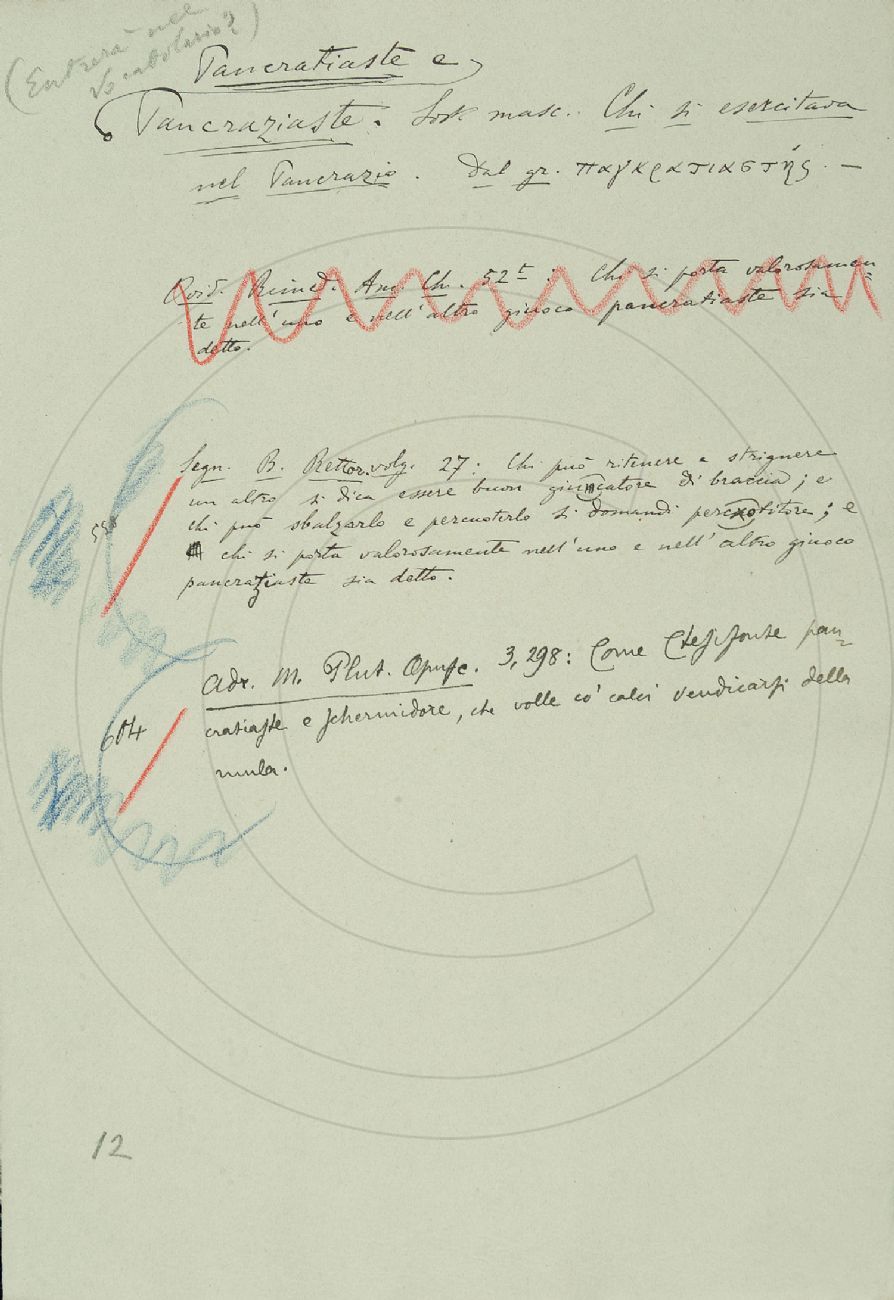 (Entrerà nel
Vocabolario?)
Pancratiaste e
Pancraziaste. Sost. masc. Chi si esercitava
nel Pancrazio. Dal gr. παγκρατιαστής. —
Ovid. Rimed. Am. Ch. 52t: Chi si porta valorosamen-
te nell'uno e nell'altro giuoco pancratiaste sia
detto.
Segn. B. Rettor. volg. 27: Chi può ritenere e strignere
un altro si dica essere buon giucatore di braccia; e
chi può sbalzarlo e percuoterlo si domandi percotitore; e
chi si porta valorosamente nell'uno e nell'altro giuoco
pancraziaste sia detto.
Adr. M. Plut. Opusc. 3, 298: Come Ctesifonte pan-
cratiaste e schermidore, che volle co' calci vendicarsi della
604
mula.
12